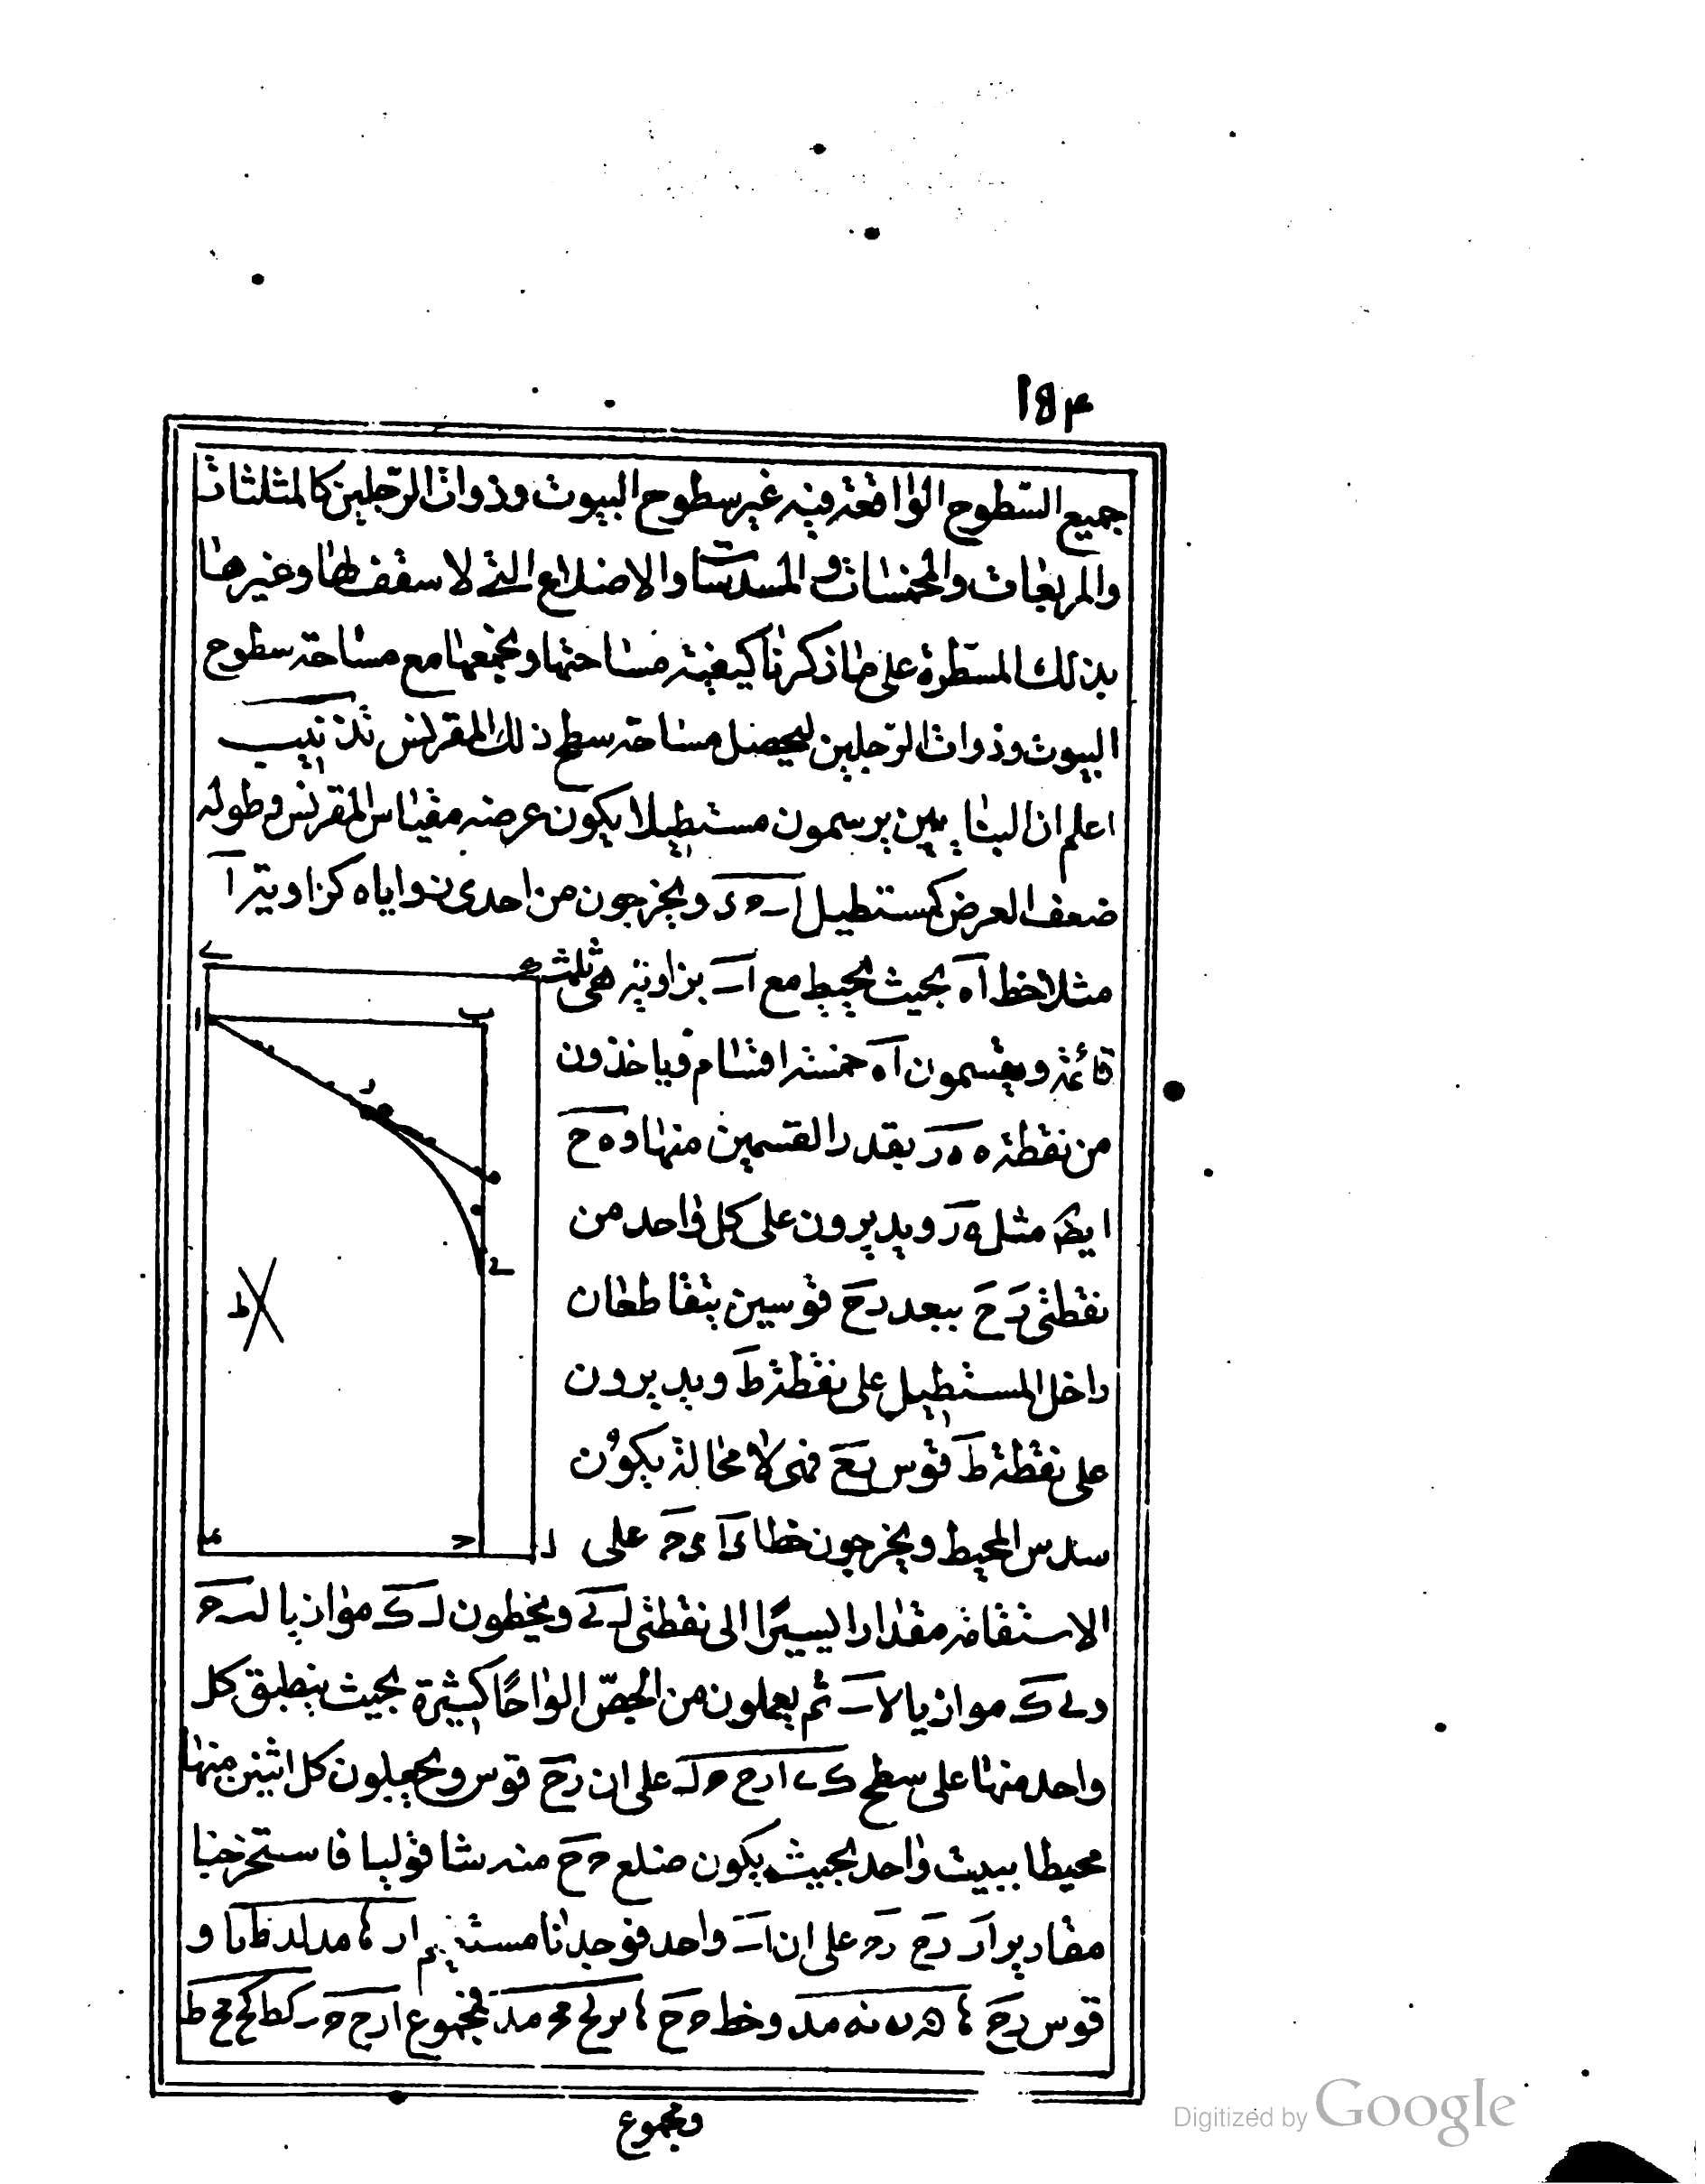 ۱۵۴
جميع السّطوح الواقعة فيه غير سطوح البيوت وذوات الرّجلين كالمثلثات
والمربعات والمخمسات والمسدسات والاضلاع التي لا سقف لها وغيرها
بذلك المسطرة على ما ذكرنا كيفية مساحتها ونجمعها مع مساحة سطوح
البيوت وذوات الرّجلين ليحصل مساحة سطح ذلك المقرنس تذنيب
اعلم ان البنايين يرسمون مستطيلا يكون عرضه مقياس المقرنس وطوله
ضعف العرض كمستطيل ا ب ح د ويخرجون من احدى زواياه كزاوية ا
ے
مثلا خط ا ه بحيث يحيط مع ا ب بزاوية هى ثلث
ا ب
قائمة ويقسمون ا ه خمسة اقسام وياخذون
ر
من نقطة ه ه ر بقدر القسمين منها و ه ح
ه
ايضا مثل ه ر ويديرون على كل واحد من
ح
نقطتى ر ح ببعد ر ح قوسين يتقاطعان
ط
داخل المستطيل على نقطة ط ويديرون
على نقطة ط قوس ر ح فهى لا محالة يكون
سدس المحيط ويخرجون خطا د ا د ح على
ء ح ل
الاستقامة مقدارا يسيرًا الى نقطتى ل ى ويخطون ل ك موازيا لب ح
و ى ك موازيا لا ب ثم يعملون من الجصّ الواحًا كثيرة بحيث ينطبق كل
واحد منها على سطح ك ى ا ر ح ح ل على ان ر ح قوس ويجعلون كل اثنين منها
محيطا ببيت واحد بحيث يكون ضلع ح ح منه شاقوليا فاستخرجنا
مقادير ا ر ر ح ح ح على ان ا ب واحد فوجدنا مستقيم ا ر
قوس ر ح وخط ح ح فمجموع ا ر ح ح
ومجموع
Digitized by Google